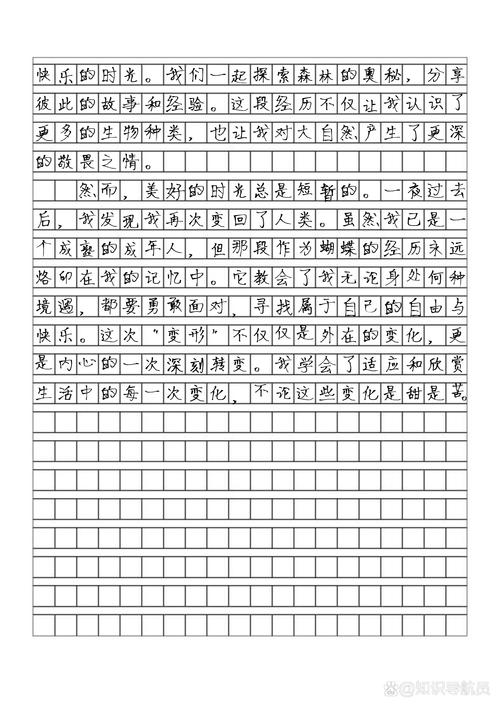 快乐的时光。我们一起探索森林的奥秘，分享
彼此的故事和经验。这段经历不仅让我认识了
更多的生物种类，也让我对大自然产生了更深
的敬畏之情。
然而，美好的时光总是短暂的。一夜过去
后，我发现我再次变回了人类。虽然我已是一
个成壑的成年人，但那段作为蝴蝶的经历永远
烙印在我的记忆中。它教会了我无论身处何种
境遇，都要勇敢面对，寻找属于自己的自由与
快乐。这次“变形”不仅仅是外在的变化，更
是内心的一次深刻转变。我学会了适应和欣赏
生活中的每一次变化，不论这些变化是甜是苦。
@知识导航员